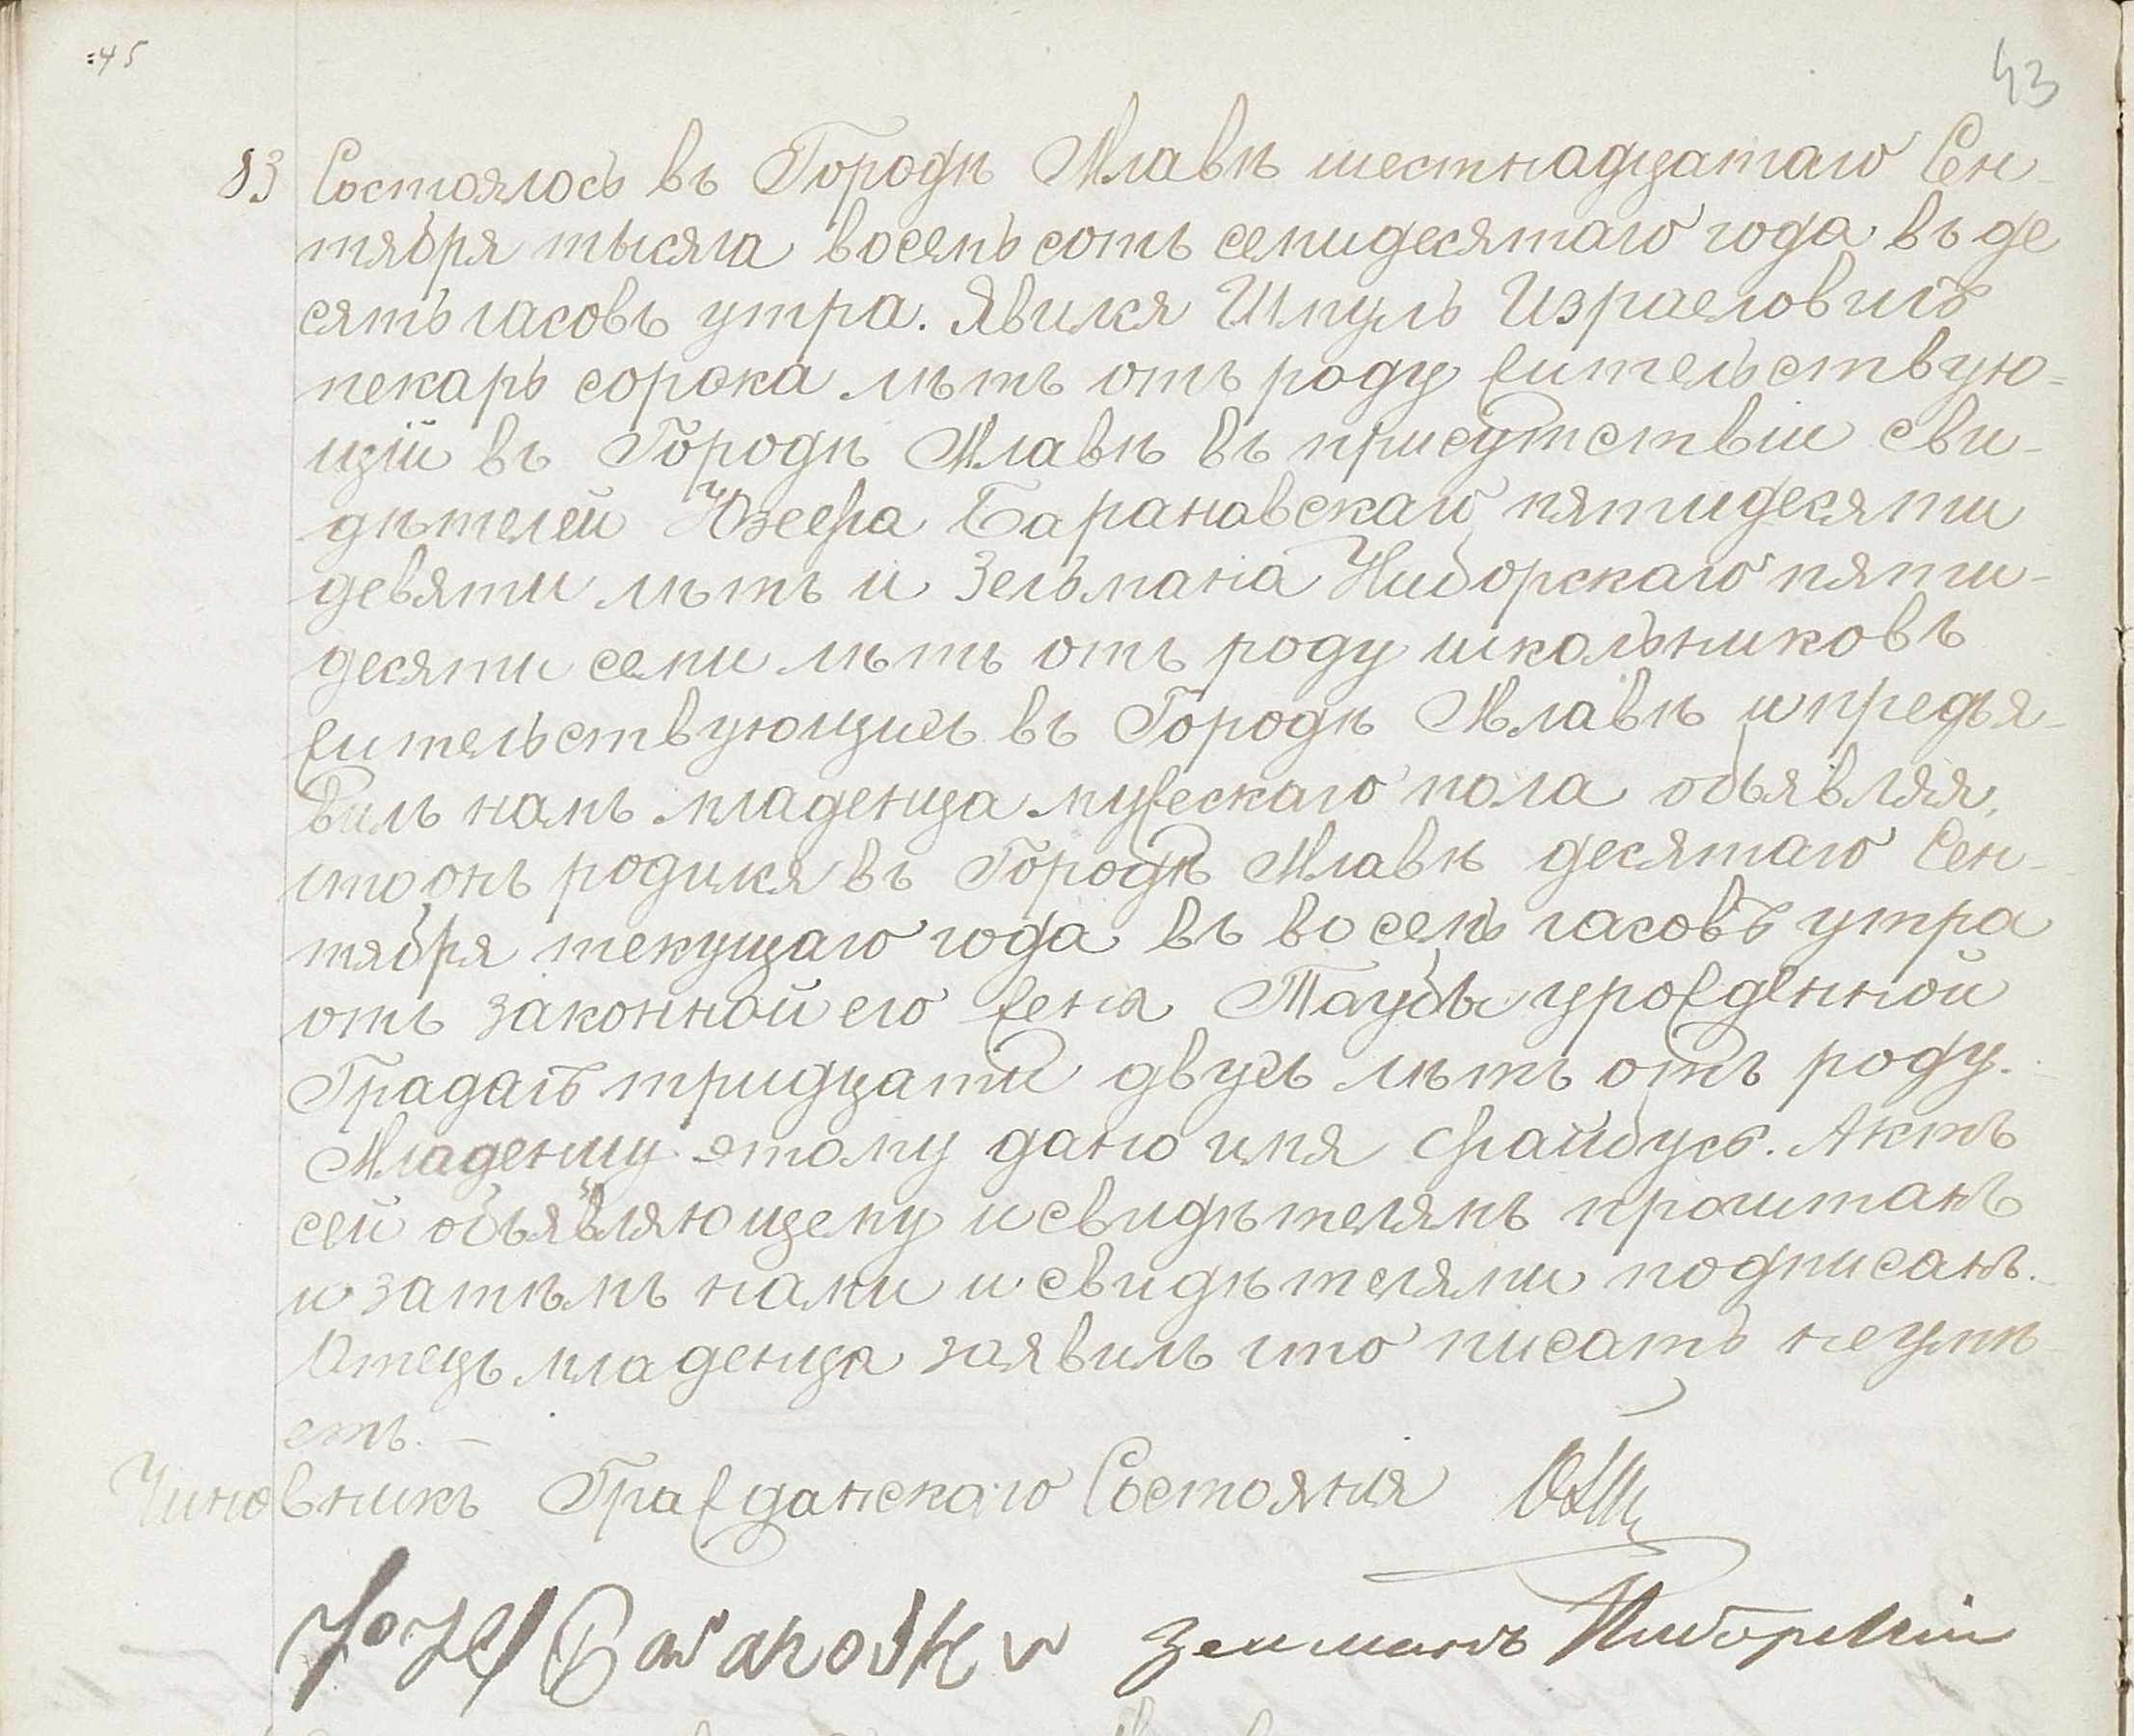 :45
43
83 Состоялось въ Городѣ Млавѣ шестнадцатаго Сен-
тября тысяча восемьсотъ семидесятаго года въ де
сять часовъ утра. Явился Шмуль Израеловичъ
пекарь сорока лѣтъ отъ роду жительствую-
щій въ Городѣ Млавѣ въ присутствіи сви-
дѣтелей Юзефа Барановскаго пятидесяти
девяти лѣтъ и Зельмана Нидборскаго пяти-
десяти семи лѣтъ отъ роду школьниковъ
жительствующихъ въ Городѣ Млавѣ и предъя-
вилъ намъ младенца мужескаго пола объявляя,
что онъ родился въ Городѣ Млавѣ десятаго Сен-
тября текущаго года въ восемь часовъ утра
отъ законной его жены Таубы урожденной
Градачъ тридцати двухъ лѣтъ отъ роду.
Младенцу этому дано имя Файбусъ. Актъ
сей объявляющему и свидѣтелямъ прочитанъ
и затѣмъ нами и свидѣтелями подписанъ.
Отецъ младенца заявилъ что писать не умѣ
етъ.—
Чиновникъ Гражданскаго Состоянія
Jozef Baranowski